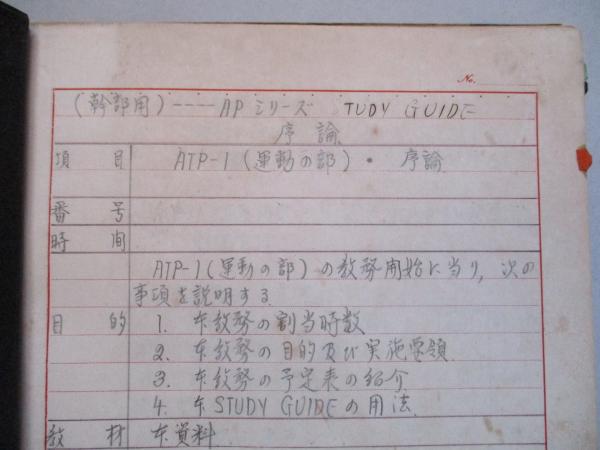 No.
(幹部用)----APシリーズ TUDY GUIDE
序論
項目 ATP-1(運動の部)・ 序論
番号
時間
ATP-1(運動の部)の教務開始に当り, 次の
事項を説明する.
目的 1. 本教務の割当時数
2. 本教務の目的及び実施要領
3. 本教務の予定表の紹介
4. 本STUDY GUIDEの用法.
教材 本資料